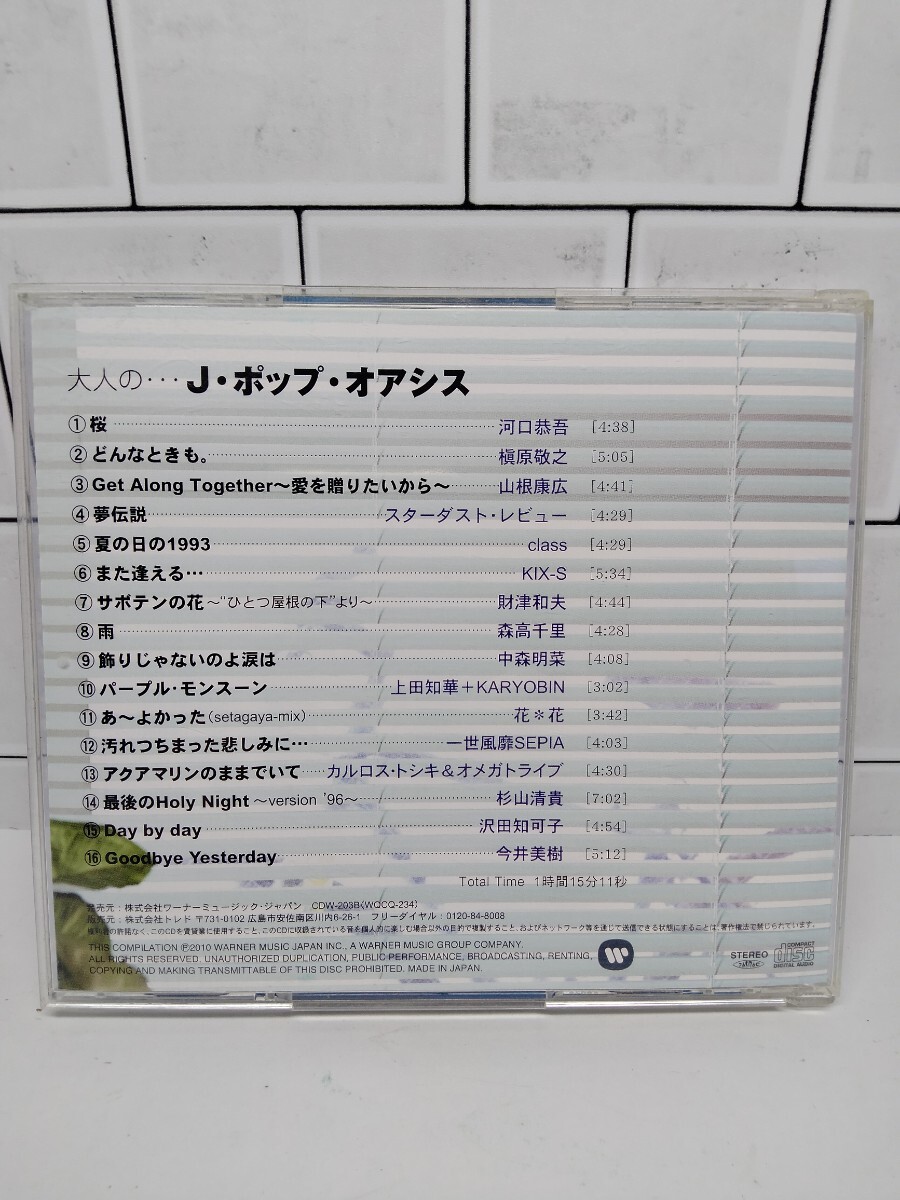 大人の・・・J・ポップ・オアシス
①桜 河口恭吾 [4:38]
②どんなときも。 槇原敬之 [5:05]
③Get Along Together〜愛を贈りたいから〜 山根康広 [4:41]
④夢伝説 スターダスト・レビュー [4:29]
⑤夏の日の1993 class [4:29]
⑥また逢える… KIX-S [5:34]
⑦サボテンの花〜"ひとつ屋根の下"より〜 財津和夫 [4:44]
⑧雨 森高千里 [4:28]
⑨飾りじゃないのよ涙は 中森明菜 [4:08]
⑩パープル・モンスーン 上田知華+KARYOBIN [3:02]
⑪あ〜よかった(setagaya-mix) 花＊花 [3:42]
⑫汚れつちまった悲しみに… 一世風靡SEPIA [4:03]
⑬アクアマリンのままでいて カルロス・トシキ&オメガトライブ [4:30]
⑭最後のHoly Night〜version '96〜 杉山清貴 [7:02]
⑮Day by day 沢田知可子 [4:54]
⑯Goodbye Yesterday 今井美樹 [5:12]
Total Time 1時間15分11秒
発売元：株式会社ワーナーミュージック・ジャパン CDW-203B(WQCQ-234)
販売元：株式会社トレド 〒731-0102 広島市安佐南区川内6-26-1 フリーダイヤル：0120-84-8008
権利者の許諾なく、このCDを賃貸業に使用すること、このCDに収録されている音を個人的に楽しむ場合以外の目的で複製すること、およびネットワーク等を通じて送信できる状態にすることは、著作権法で禁じられています。
THIS COMPILATION ℗2010 WARNER MUSIC JAPAN INC., A WARNER MUSIC GROUP COMPANY.
ALL RIGHTS RESERVED. UNAUTHORIZED DUPLICATION, PUBLIC PERFORMANCE, BROADCASTING, RENTING,
COPYING AND MAKING TRANSMITTABLE OF THIS DISC PROHIBITED. MADE IN JAPAN.
STEREO
COMPACT
disc
DIGITAL AUDIO